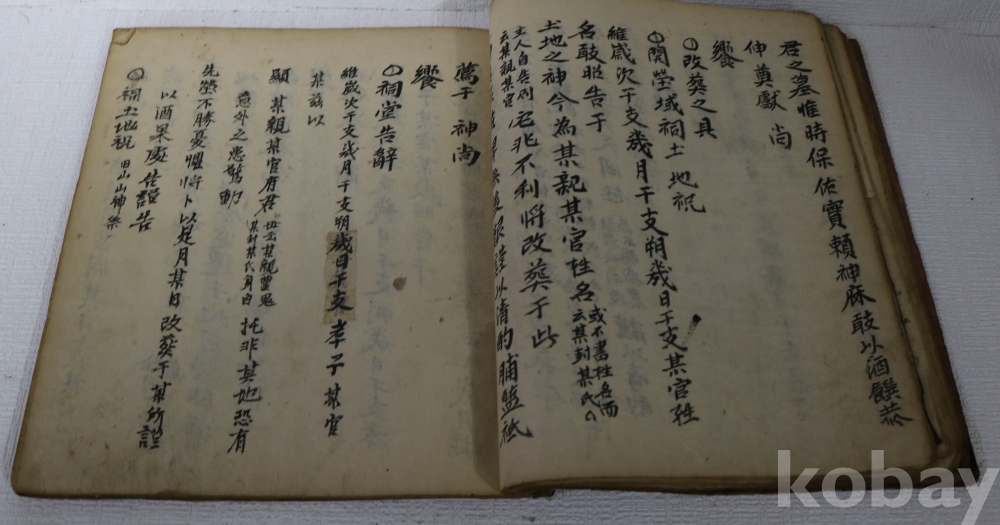 君之墓惟時保佑實賴神庥敢以酒饌恭
伸奠獻尚
饗
○改葬之具
○開塋域祠土地祝
維歲次干支幾月干支朔幾日干支某官姓
名敢昭告于
土地之神今為某親某官姓名或不書姓名而云某封某氏
主人自告則云某親某官宅兆不利將改葬于此
神其保佑俾無後艱謹以清酌脯醢祗
薦于神尚
饗
○祠堂告辭
維歲次干支幾月干支朔幾日干支孝子某官
某茲以
顯某親某官府君 托非其地恐有
意外之患驚動
先塋不勝憂懼將卜以是月某日改葬于某所謹
以酒果虔告謹告
○祠土地祝 山神祭
kobay